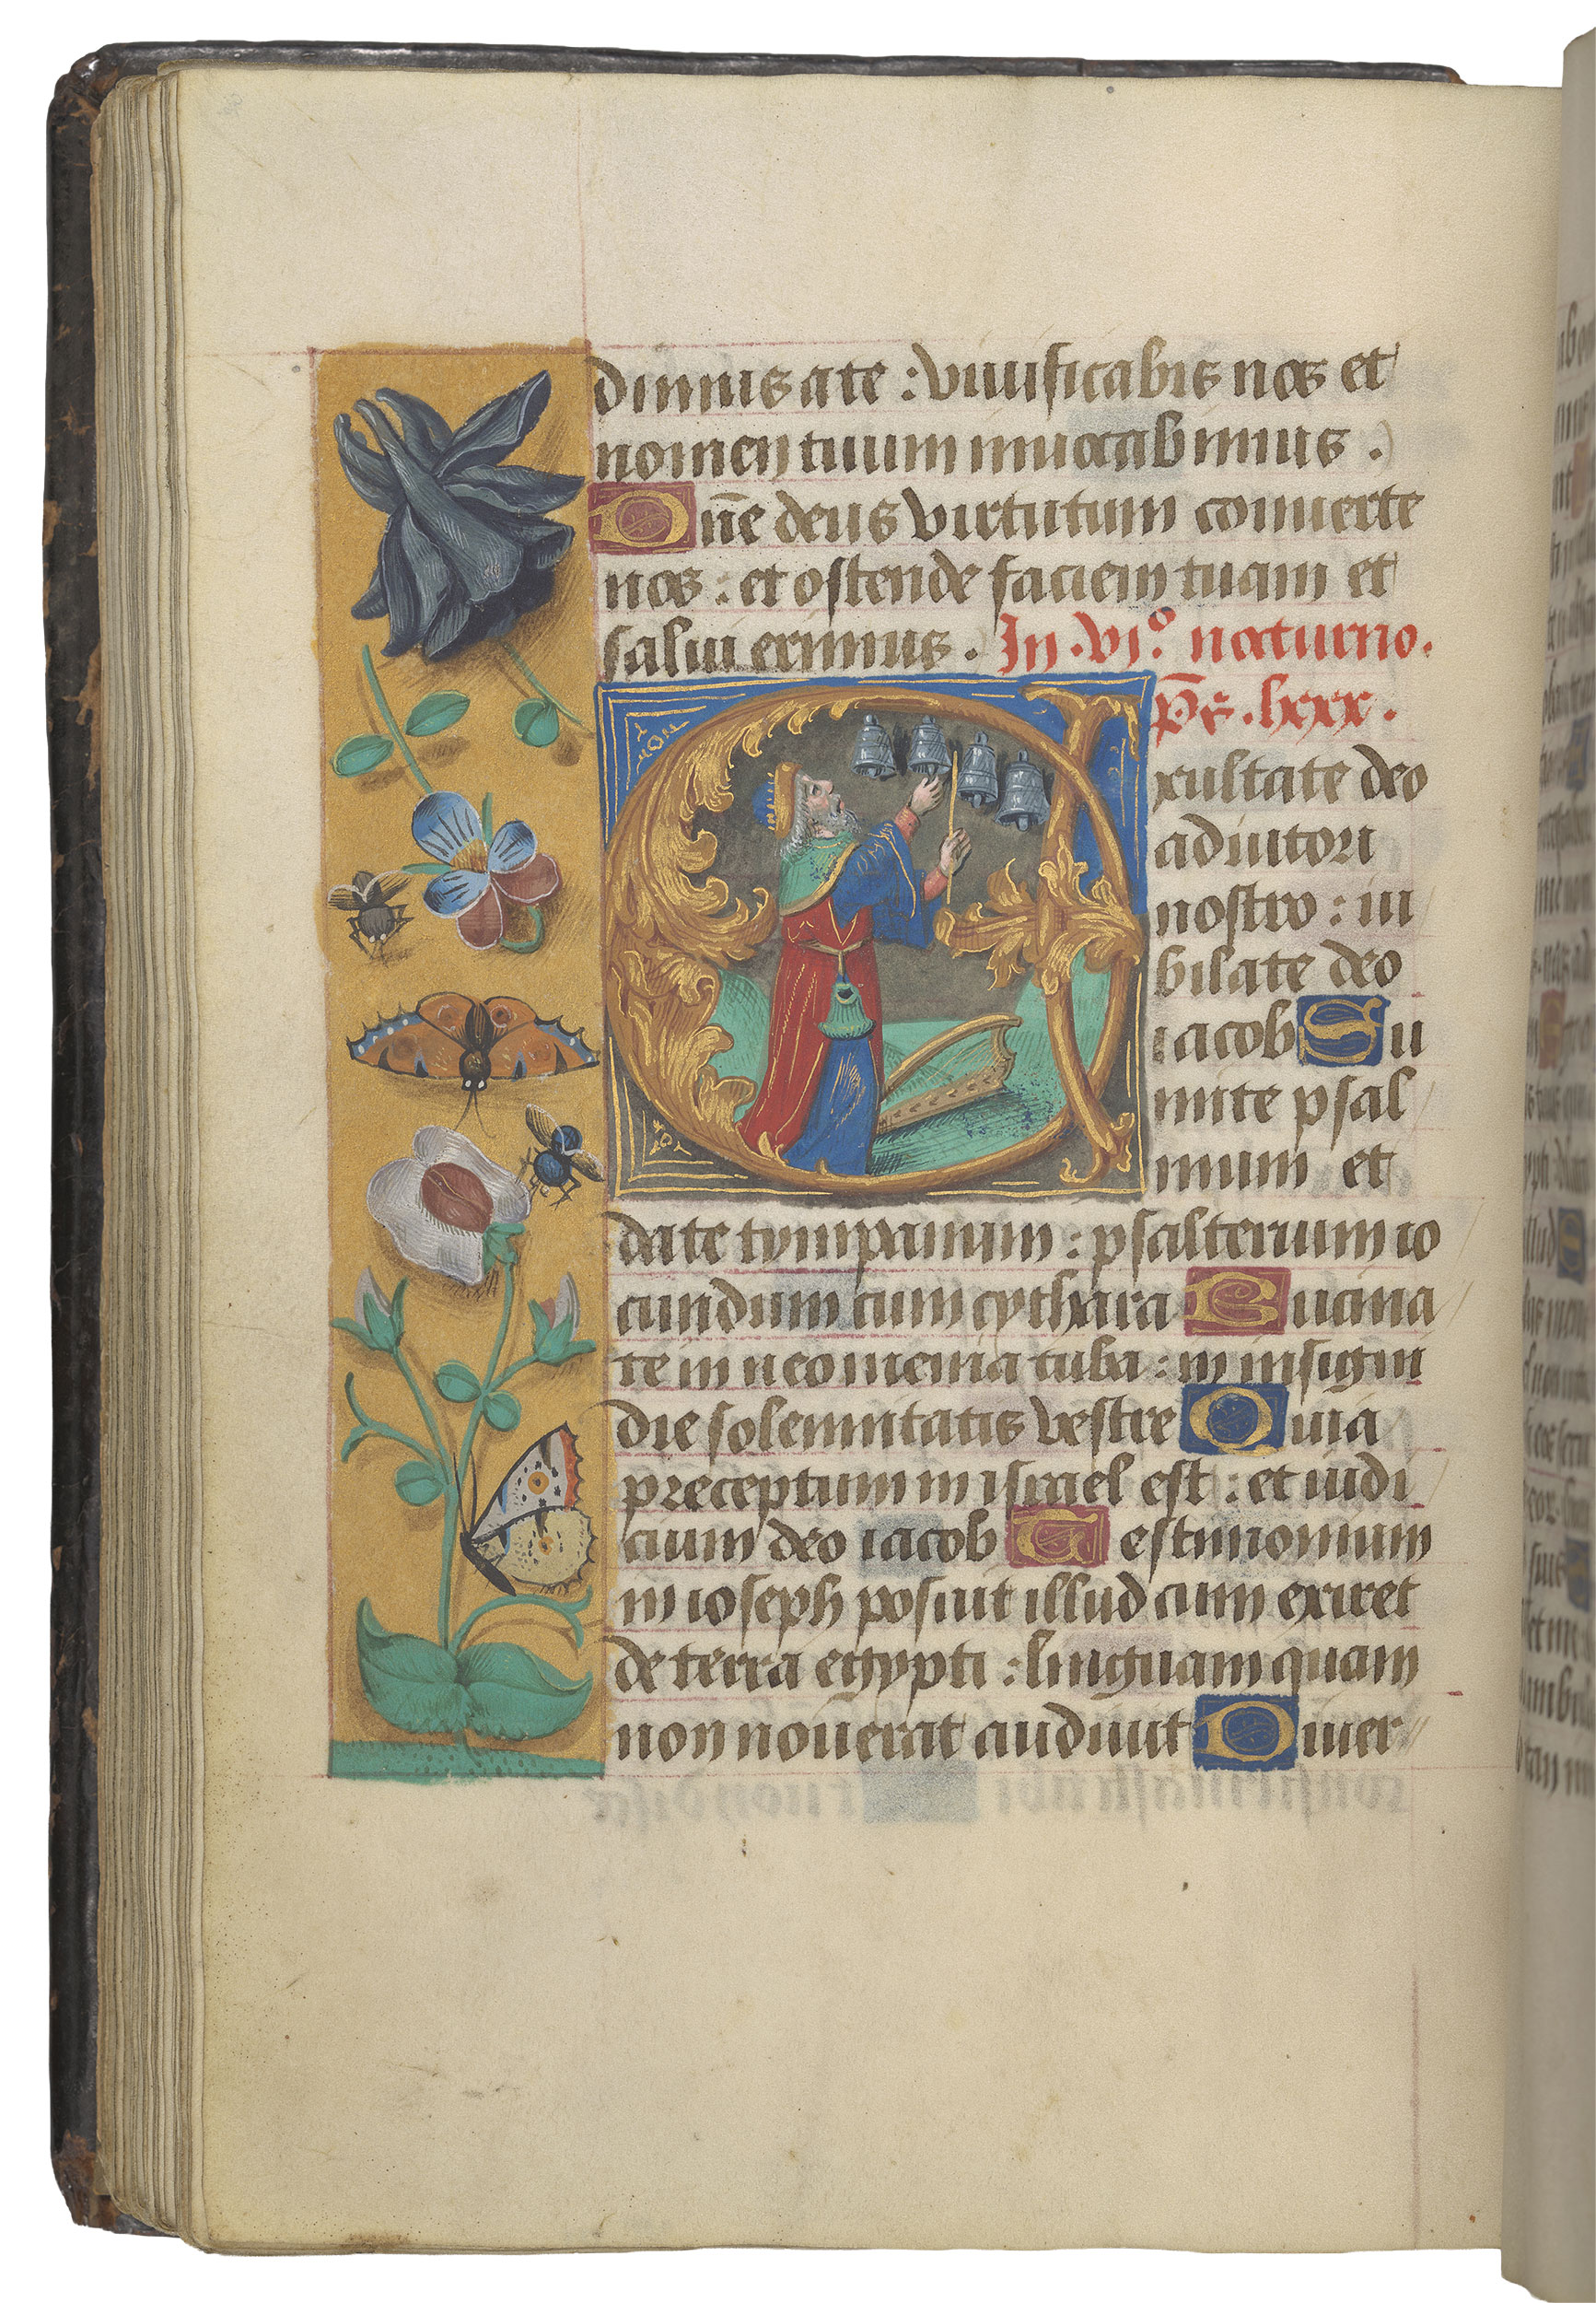 dimus a te : viuificabis nos et
nomen tuum inuocabimus .
Dñe deus virtutum conuerte
nos : et ostende faciem tuam et
salui erimus . In .vj.º nocturno.
p̄s .lxxx.
Exultate deo
adiutori
nostro : iu
bilate deo
iacob Su
mite psal
mum et
date tympanum : psalterium io
cundum cum cythara Bucina
te in neomenia tuba : in insigni
die solennitatis vestre Quia
preceptum in israel est : et iudi
cium deo iacob Testimonium
in ioseph posuit illud cum exiret
de terra egypti : linguam quam
non nouerat audiuit Diuer